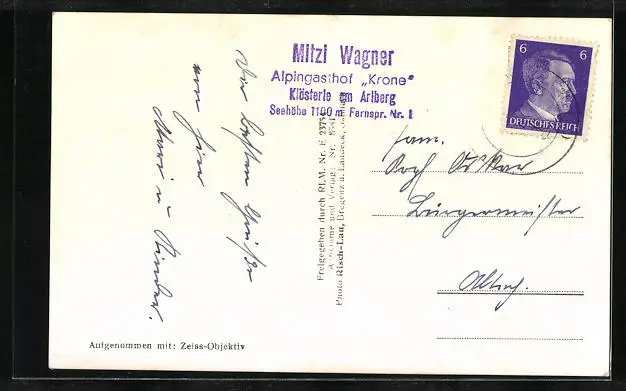 Mitzi Wagner
Alpingasthof „Krone"
Klösterle am Arlberg
Seehöhe 1100 m Fernspr. Nr. 1
6 6
DEUTSCHES REICH
Die besten Grüße
von hier
u. Kinder.
Fam.
Oskar
Bürgermeister
Freigegeben durch RLM. Nr. E
Aufnahme und Verlag: Nr.
Photo Risch-Lau, Bregenz u. Landeck,
Aufgenommen mit: Zeiss-Objektiv